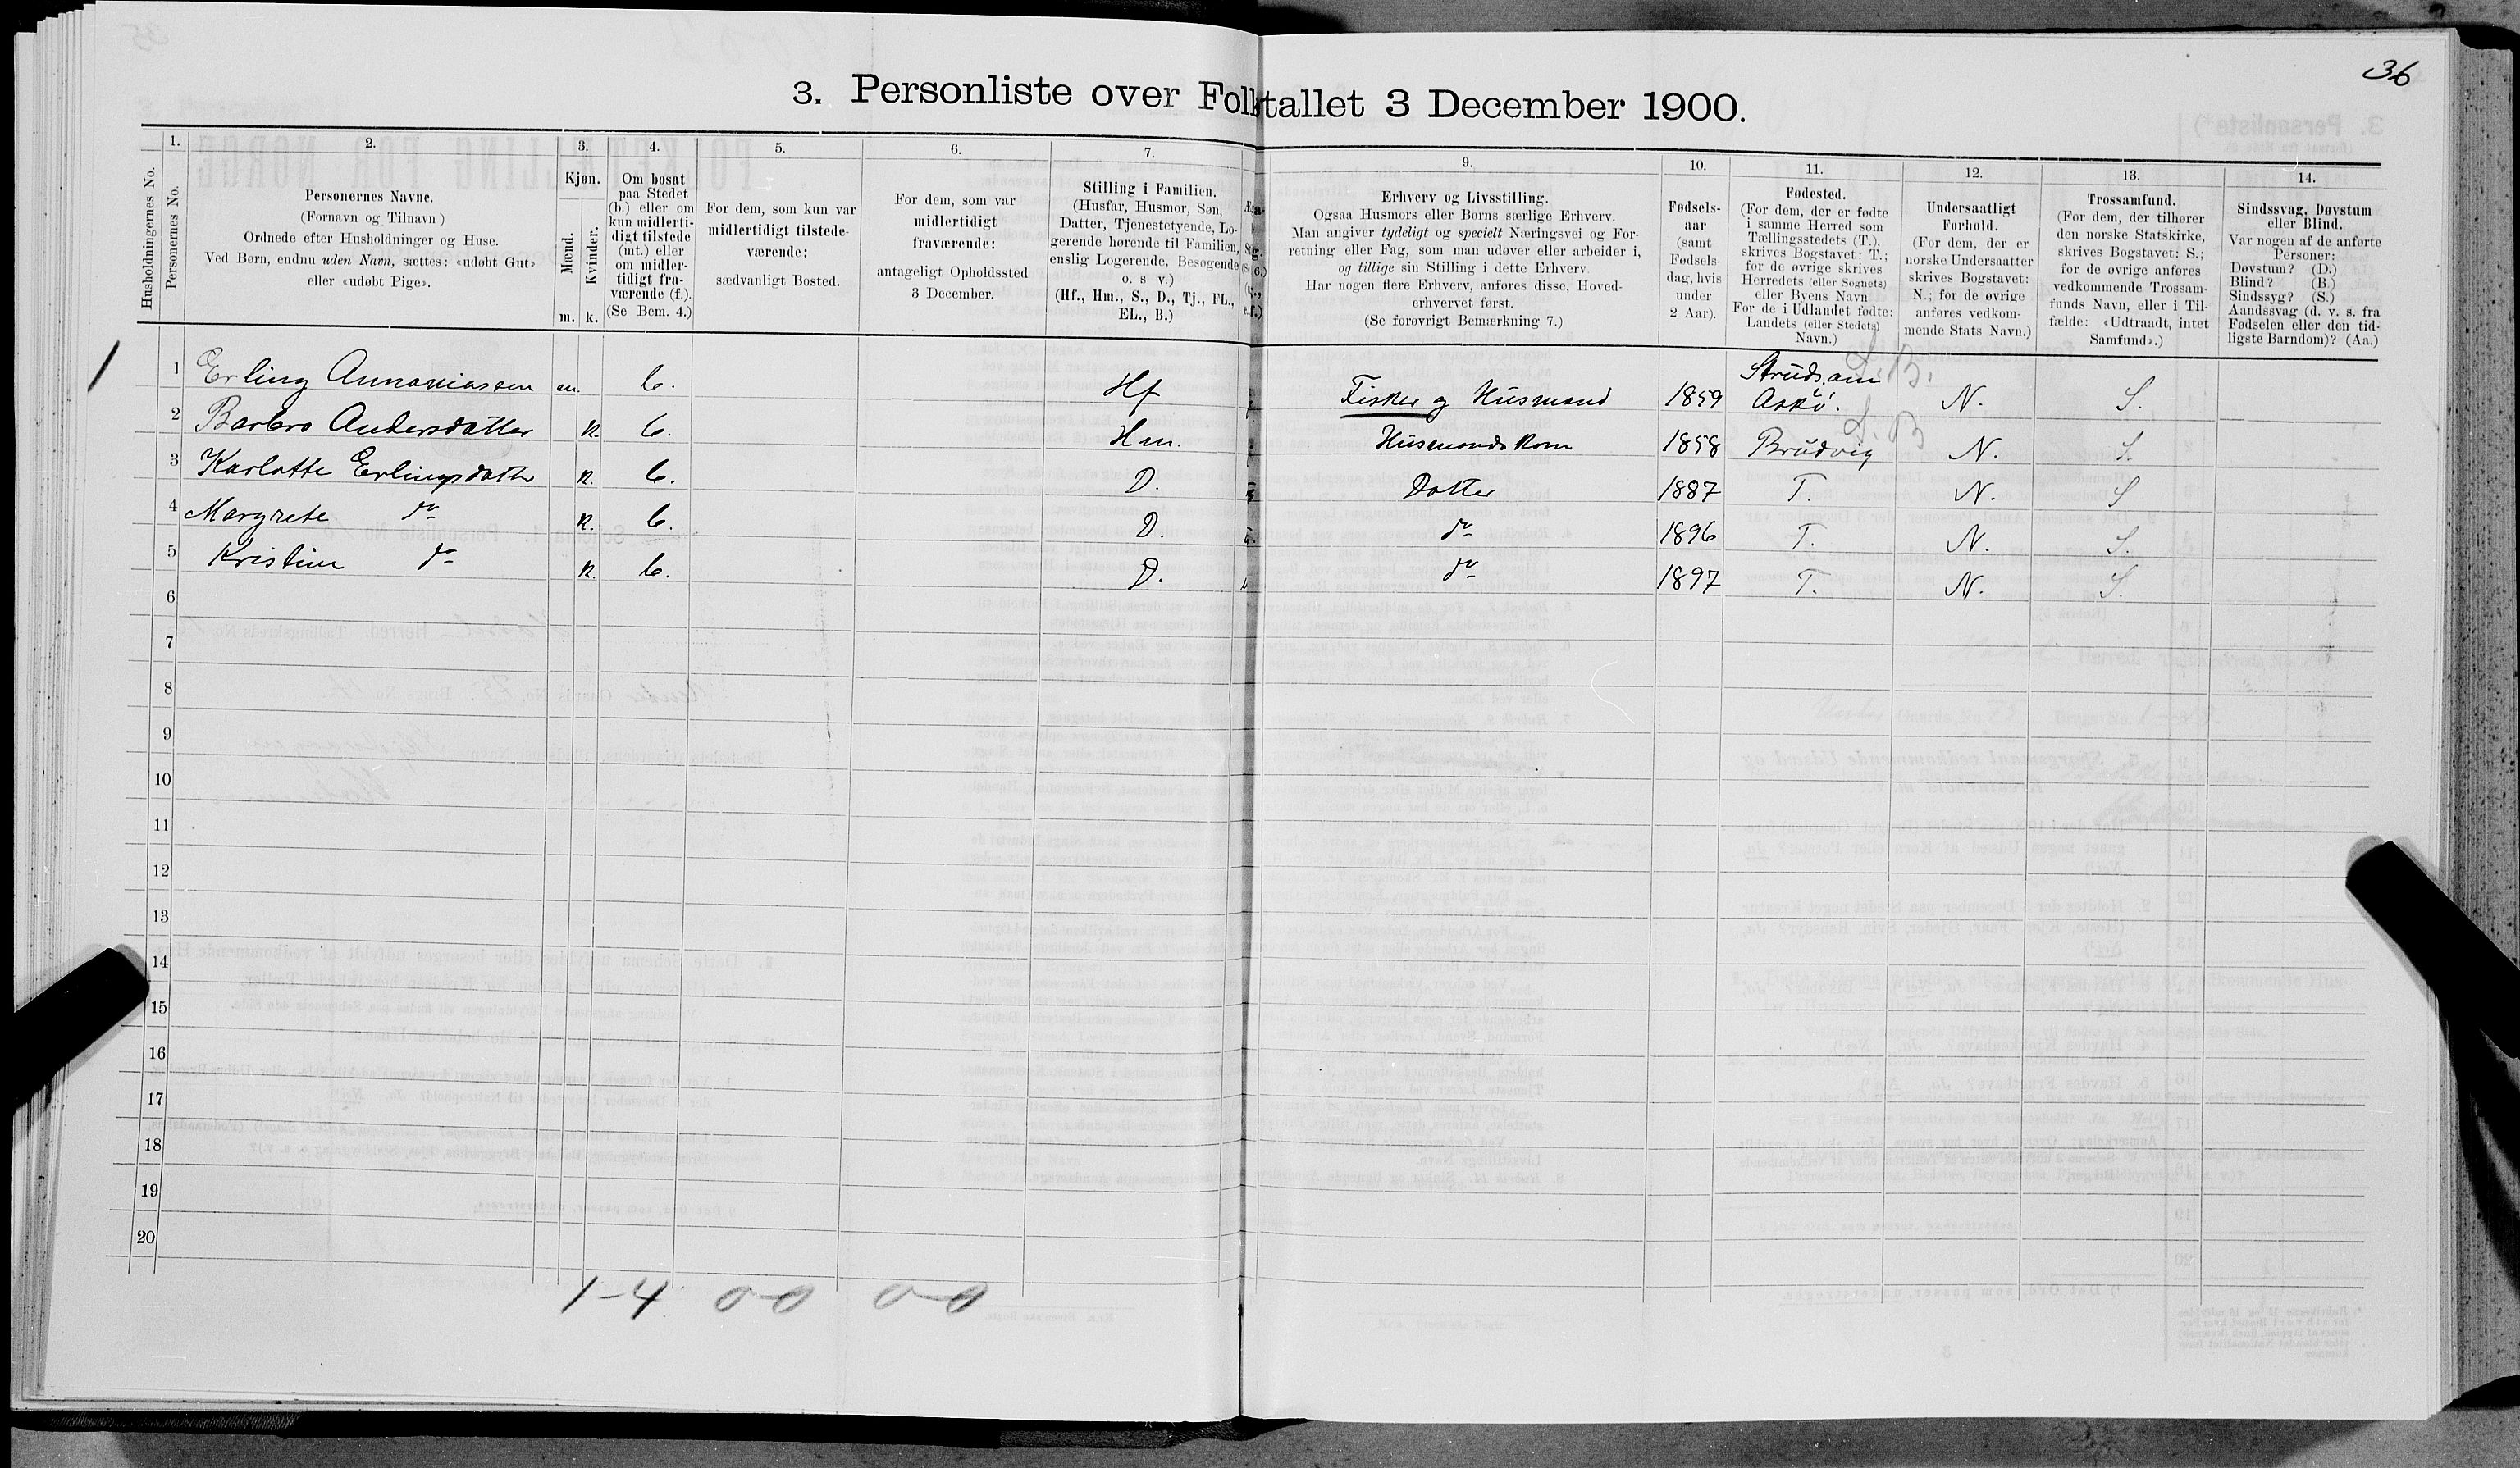 36
3. Personliste over Folketallet 3 December 1900.
Husholdningernes No.
1.
Personernes No.
2.
Personernes Navne.
(Fornavn og Tilnavn)
Ordnede efter Husholdninger og Huse.
Ved Børn, endnu uden Navn, sættes: «udøbt Gut»
eller «udøbt Pige».
3.
Kjøn.
Mænd.
Kvinder.
m. k.
4.
Om bosat
paa Stedet
(b.) eller om
kun midlerti-
digt tilstede
(mt.) eller
om midler-
tidigt fra-
værende (f.).
(Se Bem. 4.)
5.
For dem, som kun var
midlertidigt tilstede-
værende:
sædvanligt Bosted.
6.
For dem, som var
midlertidigt
fraværende:
antageligt Opholdssted
3 December.
7.
Stilling i Familien.
(Husfar, Husmor, Søn,
Datter, Tjenestetyende, Lo-
gerende hørende til Familien,
enslig Logerende, Besøgende
o. s v.)
(Hf., Hm., S., D., Tj., FL.,
EL., B.)
9.
Erhverv og Livsstilling.
Ogsaa Husmors eller Børns særlige Erhverv.
Man angiver tydeligt og specielt Næringsvei og For-
retning eller Fag, som man udøver eller arbeider i,
og tillige sin Stilling i dette Erhverv
Har nogen flere Erhverv, anføres disse, Hoved-
erhvervet først.
(Se forøvrigt Bemærkning 7.)
10.
Fødsels-
aar
(samt
Fødsels-
dag, hvis
under
2 Aar).
11.
Fødested.
(For dem, der er fødte
i samme Herred som
Tællingsstedets (T.),
skrives Bogstavet: T.;
for de øvrige skrives
Herredets (eller Sognets)
eller Byens Navn
For de i Udlandet fødte:
Landets (eller Stedets)
Navn.)
12.
Undersaatligt
Forhold.
(For dem, der er
norske Undersaatter
skrives Bogstavet:
N.; for de øvrige
anføres vedkom-
mende Stats Navn.)
13.
Trossamfund.
(For dem, der tilhører
den norske Statskirke,
skrives Bogstavet: S.;
for de øvrige anføres
vedkommende Trossam-
funds Navn, eller i Til-
fælde: «Udtraadt, intet
Samfund».)
14.
Sindssvag, Døvstum
eller Blind.
Var nogen af de anførte
Personer:
Døvstum? (D.)
Blind? (B.)
Sindssyg? (S.)
Aandssvag (d. v. s. fra
Fødselen eller den tid-
ligste Barndom)? (Aa.)
S. B.
1 Erling Annaniassen m. b. Hf Fisker og Husmand 1859 Askø. N. S.
S. B
2 Barbro Andersdatter k. b. Hm. Husmandskone 1858 Brudvig N. S.
3 Karlotte Erlingsdatter k. b. D. Datter 1887 T. N. S
4 Margrete do k. b. D. do 1896 T. N. S.
5 Kristine do k. b. D. do 1897 T. N. S.
6
7
8
9
10
11
12
13
14
15
16
17
18
19
20
1-4 0-0 0-0